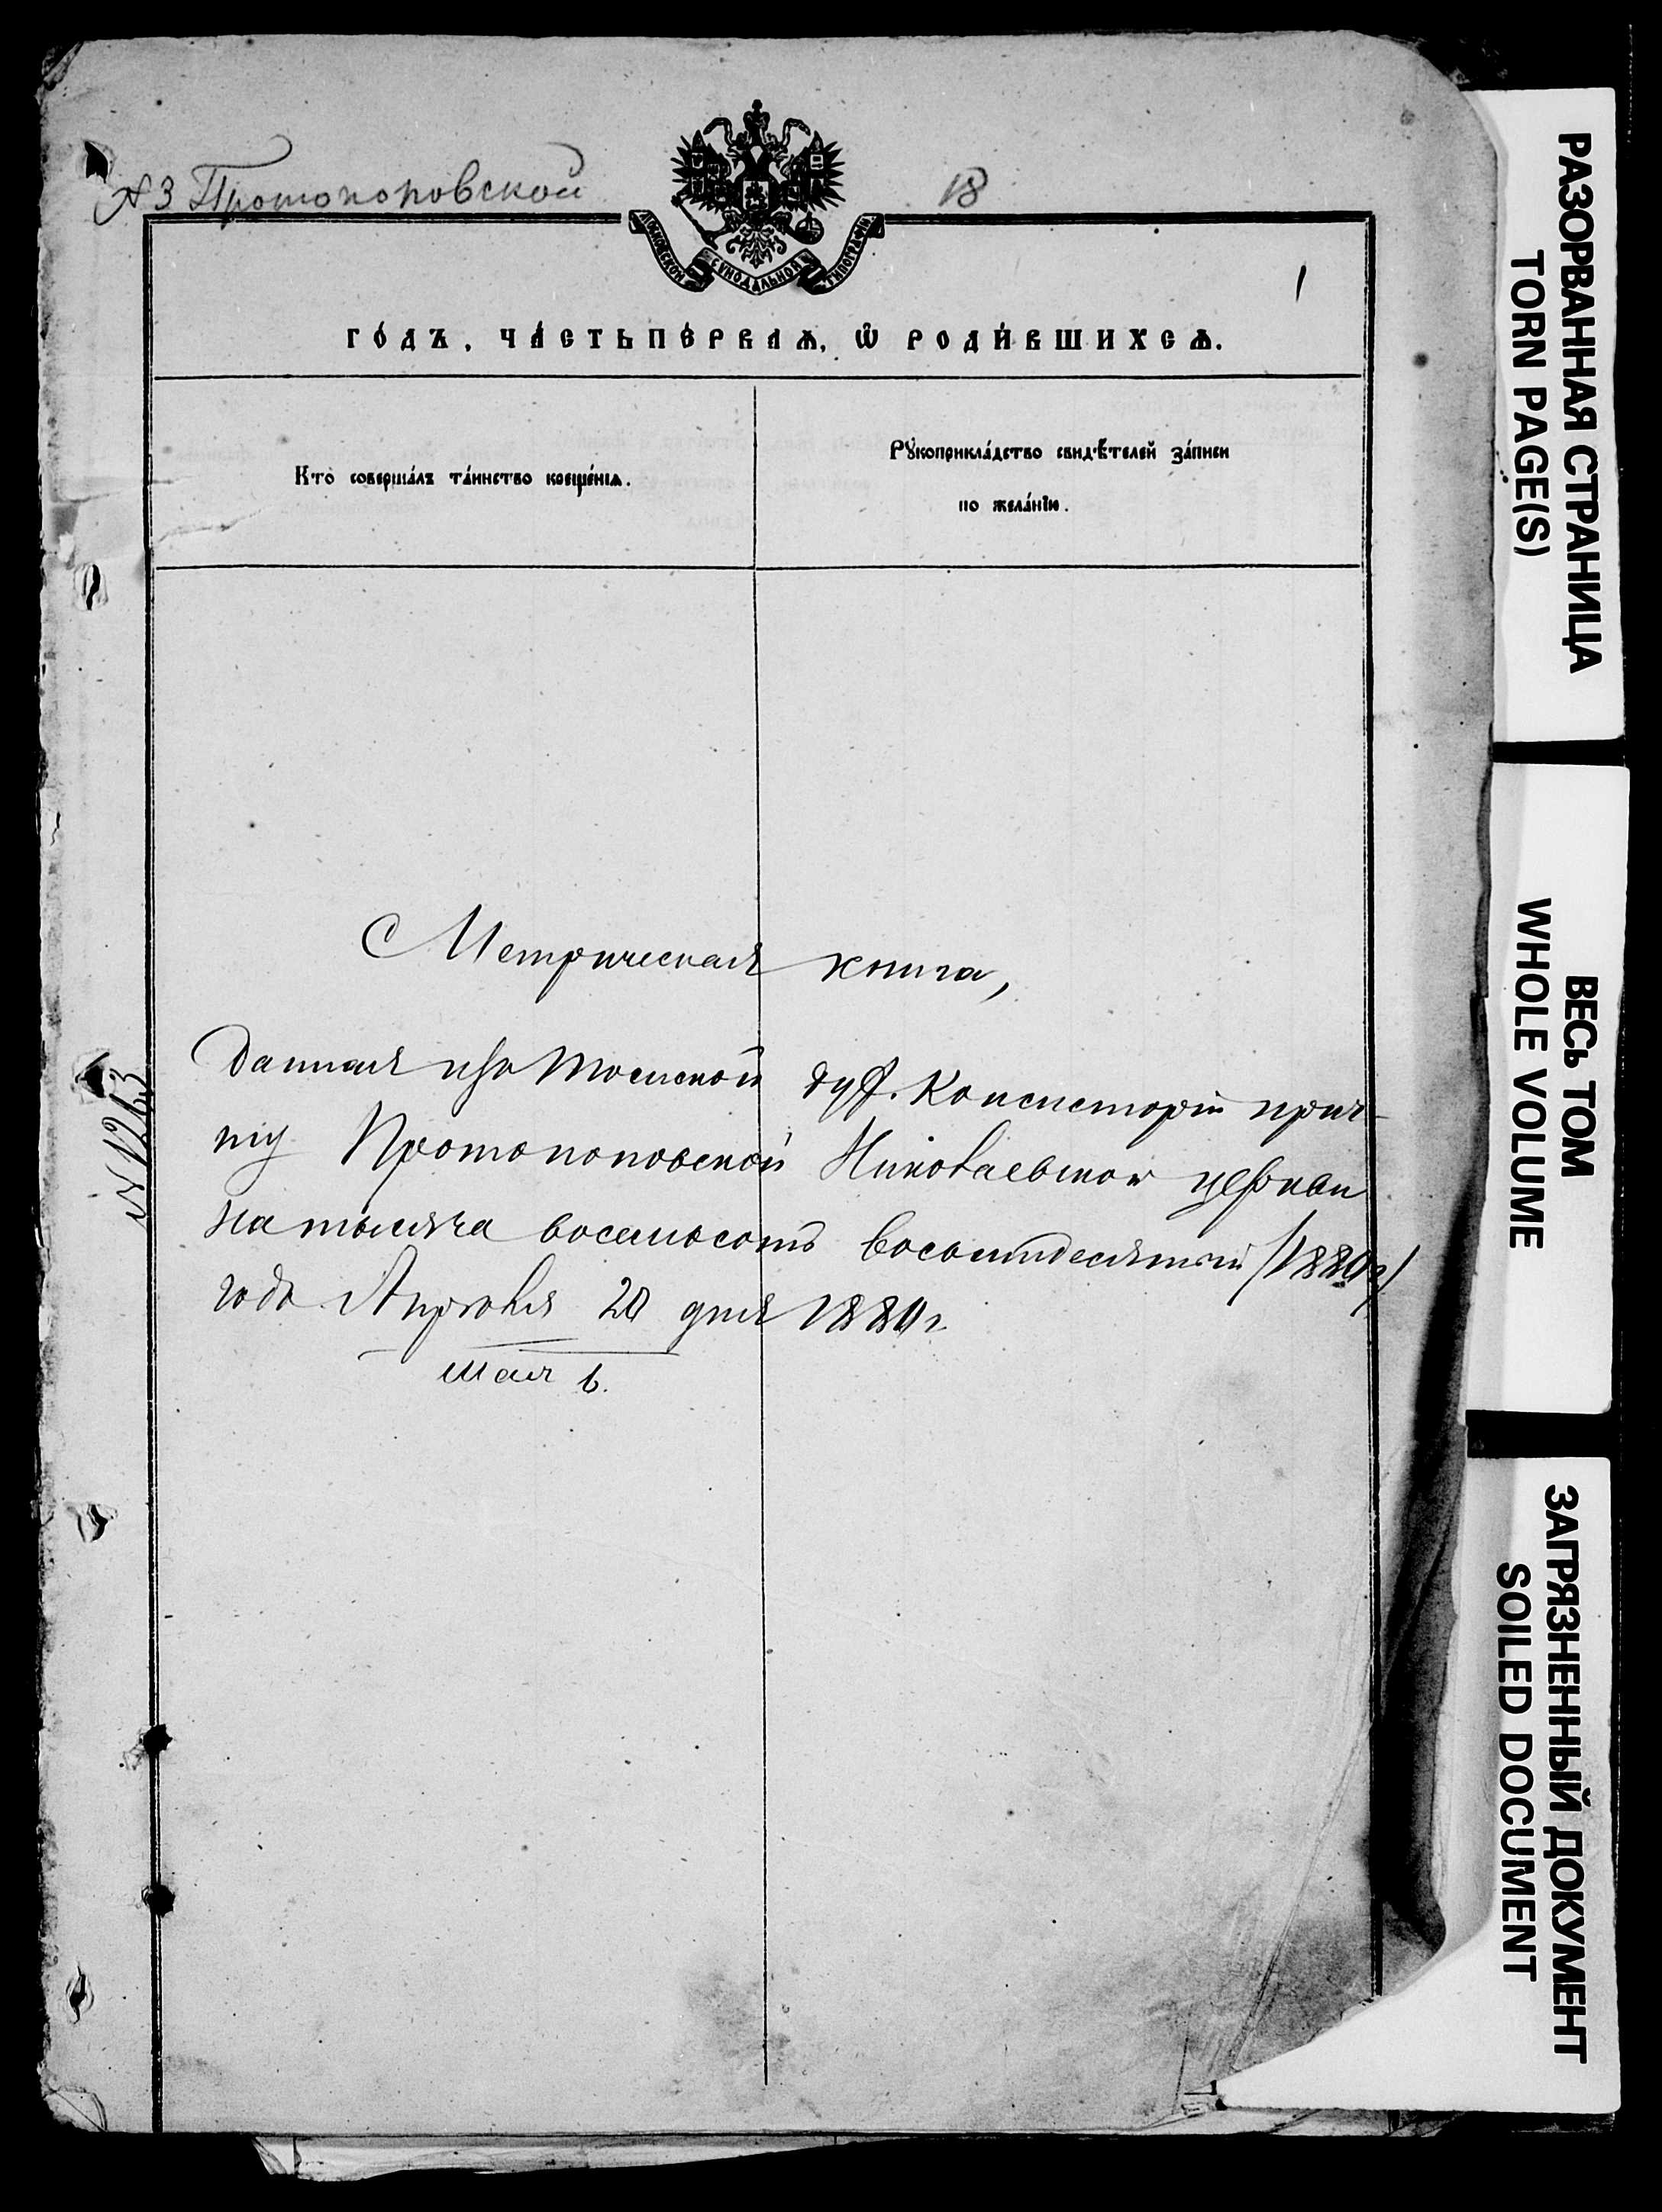 № 3 Протопоповской
18
МОСКОВСКОЙ СѴНОДАЛЬНОЙ ТИПОГРАФІИ
1
ГО́ДЪ, ЧА́СТЬ ПЕ́РВАѦ, Ѽ РОДИ́ВШИХСѦ.
Кто̀ соверша́лъ та́инство креще́нїѧ.
Рꙋкоприкла́дство свидѣ́телей за́писи
по жела́нїю.
Метрическая книга,
данная изъ Томской дух. Консисторіи прич-
ту Протопоповской Николаевской церкви
на тысяча восемьсотъ восьмидесятый /1880 г/
года Апрѣля 20 дня 1880 г.
Мая 6.
№ 1263
РАЗОРВАННАЯ СТРАНИЦА
TORN PAGE(S)
ВЕСЬ ТОМ
WHOLE VOLUME
ЗАГРЯЗНЕННЫЙ ДОКУМЕНТ
SOILED DOCUMENT